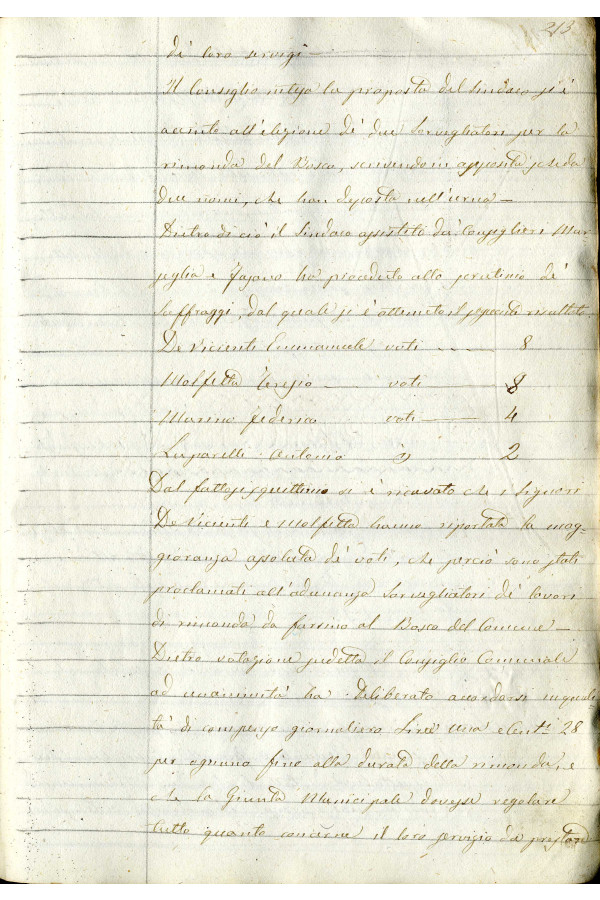 213
de' loro servigi —
Il Consiglio inteso la proposta del Sindaco si è
accinto all'elezione de' due Sorvegliatori per la
rimonda del Bosco, scrivendo in apposita scheda
due nomi, che han deposta nell'urna —
Dietro di ciò il Sindaco assistito da' Consiglieri Mar
siglia e Fasano ha proceduto allo scrutinio de'
Suffraggi, dal quale si è ottenuto il seguente risultato
De Vicienti Emmanuele voti — 8
Molfetta Teresio — voti — 8
Marino Federico voti — 4
Luparelli Antonio " 2
Dal fattosi squittino si è ricavato che i Signori
De Vicienti e Molfetta hanno riportata la mag=
gioranza assoluta de' voti, che perciò sono stati
proclamati all'adunanza Sorvegliatori de' lavori
di rimonda da farsino al Bosco del Comune —
Dietro votazione sudetta il Consiglio Comunale
ad unanimità ha deliberato accordarsi in quali=
tà di compenso giornaliero Lire una e Cent.i 28
per ognuno fino alla durata della rimonda, e
che la Giunta Municipale dovesse regolare
tutto quanto concerne il loro servizio da prestare